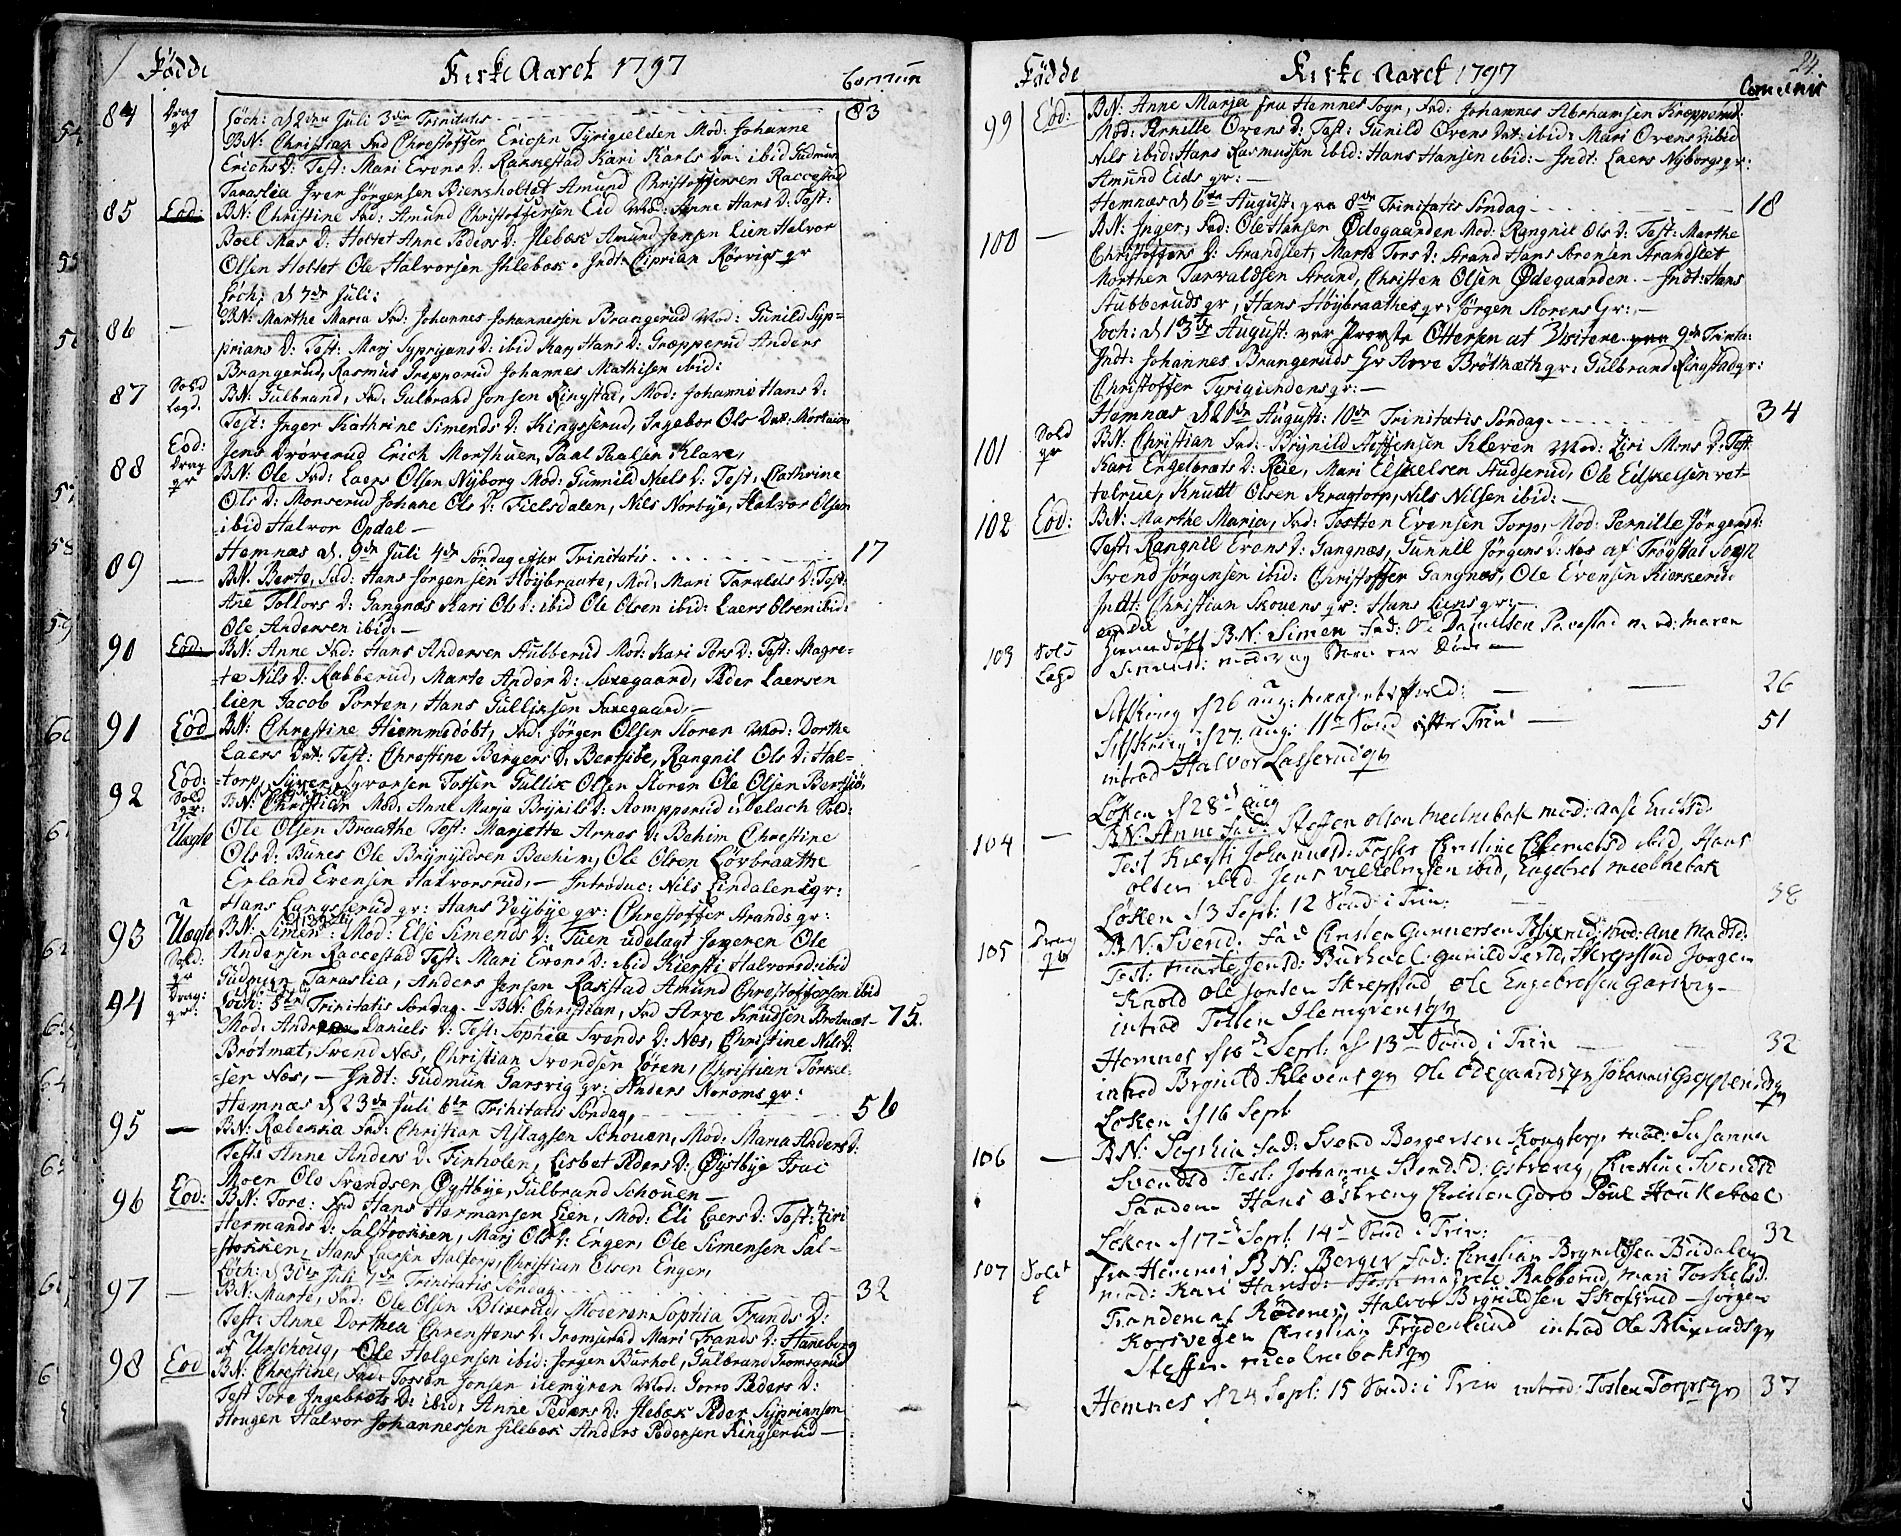 Födde Kirke Aaret 1797 Comun
84 Drag gr Löch: d 2den Juli 3die Trinitatis 83
BN: Christian Fad Chrestoffer Ericsen Tyrigielden Mod: Johanne
Erichs D: Test: Mari Evens D: Rakkestad Kari Karls D: ibid Gudmun
Taraslia Iver Jörgensen Biensholtet Amund Christoffersen Raccestad
85 Eod: BN: Christine Fad: Amund Christoffersen Eid Mod: Anne Hans D: Test:
Boel Mas D: Holtet Anne Peders D: Ilebek Amund Jensen Lien Halvor
Olsen Holtet Ole Halvorsen Ihlebek. Indt: Ciprian Rörvigs gr
Löch: d 7de Juli:
86 — BN: Marthe Maria Fad: Johannes Johannessen Brangerud Mod: Gunild Syp=
prians D: Test: Marj Syprijans D: ibid Karj Hans D: Græpperud Anders
Brangerud, Rasmus Grepperud Johannes Mathisen ibid:
87 Sold Lægd. BN: Gulbrand, Fad. Gulbrand Jonsen Ringstad, Mod: Johanne Hans D:
Test: Inger Kathrine Simends D: Kingsserud, Ingebor Ols Dat: Morthuen
Jens Dröverud Erich Morthuen, Paal Paalsen Klare,
88 Eod: Drag gr BN: Ole Fad: Laers Olsen Nyborg Mod: Gunnild Niels D: Test: Cathrine
Ols D: Monserud Johane Ols D: Tielsdalen, Nils Norbye, Halvor Olsen
ibid Halvor Opdal —
Hemnæs d. 9de Juli 4de Söndag efter Trinitatis. 17
89 — BN. Berte, Fad: Hans Jörgensen Höybraate, Mod: Mari Taralds D: Test:
Ane Tollors D: Gangnæs Kari Ols D: ibid Ole Olsen ibid: Laers Olsen ibid:
Ole Andersen ibid: —
90 Eod: BN: Anne Fad: Hans Andersen Stubberud Mod: Kari Pers D: Test: Magre-
-te Nils D: Rabberud, Marte Ander D: Suregaard, Peder Laersen
Lien Jacob Porten, Hans Gullixsen Suregaard, —
91 Eod BN: Chrestine Hiemmedöbt, Fad: Jörgen Olsen Storen Mod: Dorthe
Laers Dat: Test: Chrestine Bergers D: Bergsiöe, Rangnil Ols D: Hal-
torp, Syver Syversen Tossen Gullix Olsen Storen Ole Olsen Bergsiö,
92 Eod: Sold gr: Uægte BN: Christian Mod: Anne Marja Brynils D: Rompperud udelach Sold:
Ole Olsen Braathe Test: Marjette Arnes D: Behim Chrestine
Ols D: Bunes Ole Brynyldsen Beehim, Ole Olsen Lövbraathe
Erland Evensen Halvorsrud, — Introduc: Nils Lindalens gr:
Hans Langsserud gr: Hans Vejbye gr: Chrestoffer Arands gr:
93 Uægte Sold: gr BN: Simen: Mod: Else Simends D: Tuen udelagt Faderen Ole
Andersen Raccestad Test: Mari Evens D: ibid Kiersti Halvorsd: ibid
Gudmun Taraslia, Anders Jensen Rakstad Amund Chrestoffersen ibid
94 Drag: gr: Löch: 5te Trinitatis Söndag — BN: Christian, Fad Arve Knudsen Brötmæt 75.
Mod: Andrea Daniels D: Test: Sophia Svends D: Næs, Christine Nils D:
Brötmæt, Svend Næs, Christian Svendsen Lören, Christian Törkel-
-sen Næs, — Indt: Gudmun Garsvig gr: Anders Noroms gr:
Hemnæs d 23de Juli 6te Trinitatis Söndag, 56
95 — BN: Rebekka Fad: Christian Aslagsen Schouen, Mod: Maria Anders D:
Test: Anne Anders D. Finholen, Lisbet Peders D: Öystbye Isac
Moen Ole Svendsen Öystbye, Gulbrand Schouen —
96 Eod: BN: Tore: Fad Hans Hermansen Lien, Mod: Eli Laers D: Test: Ziri
Hermands D: Salstrokken, Marj Ols D: Enger, Ole Simensen Sal-
-stokken, Hans Laersen Haltorp, Christian Olsen Enger,
Löch: d 30de Juli 7de Trinitatis Söndag 32
97 — BN: Marte, Fad: Ole Olsen Blixerud, Moderen Sophia Trands D:
Test: Anne Dorthea Chrenstens D: Gromserud Mari Trands D: Haneborg
af Urschoug, Ole Helgensen ibid: Jorgen Burhol, Gulbrand Tromsrud
98 Eod BN: Chrestine, Fad: Tossen Jonsen Ilemÿren Mod: Gorro Peders D:
Test Tore Ingebrets D: ibid, Anne Peders D: Ilebek Peder Syprianson
Hougen Halvor Johannessen Ilebek Anders Pedersen Kingserud —
24.
Födde Kirke Aaret 1797 Comunis
99 Eod: BN: Anne Marja fra Hemnes Sogn, Fad: Johannes Abrahamsen Krepperud:
Mod: Pernille Ovens D: Test: Gunild Ovens Dat: ibid: Mari Ovens D: ibid
Nils ibid: Hans Rasmussen ibid: Hans Hansen ibid: — Indt: Laers Nyborgs gr:
Amund Eids gr: —
Hemnæs d 6te August: 8de Trinitatis Söndag 18
100 — BN: Inger, Fad: Ole Hansen Ødegaarden Mod: Rangnil Ols D: Test: Marthe
Christoffers D: Arandslet, Marte Tors D: Arand Hans Sörensen Arandslet
Morthen Tarraldsen Arand, Christen Olsen Ødegaarden. — Indt: Hans
Stubberuds gr, Hans Höybraathes gr: Jörgen Storens Gr: —
Löch: d 13de August: var Provste Ottersen at Visitere 9de Trinita:
Indt: Johannes Brangeruds Gr Arve Brötmæth gr: Gulbrand Ringstad gr:
Christoffer Tyrigiendens gr: —
Hemnæs d 20de Augusti: 10de Trinitatis Söndag 34
101 Sold gr BN: Christian Fad: Brynild Steffensen Kleven Mod: Ziri Mons D: Test
Kari Engelbrets D: Reie, Mari Elskelsen Studserud, Ole Eilskelsen vet-
telrue, Knudt Olsen Kragtorp, Nils Nilsen ibid: —
102 Eod: BN: Marthe Maria, Fad: Tostten Evensen Torp, Mod: Pernille Jörgensd:
Test: Rangnil Evens D: Gangnæs, Gunnil Jörgens D: Næs af Trögstad Sogn
Svend Jörgensen ibid: Christoffer Gangnæs, Ole Evensen Kierkerud:
Indt: Christian Skovens gr: Hans Liens gr: —
103 Sold Lægd hiemmedöbt BN: Simen Fad: Ole Danielsen Racestad mod: Maren
Simensd: moder og Barn ere Döde —
Sitskoug d 26 aug: — 26
Sitskoug d 27 aug: 11te Sönd efter Trin — 51
introd Halvor Lasserud gr
Løken d 28de aug
104 — BN: Anne Fad: Steffen Olsen Mielnebak mod: Aase Erichsd
Test Kiersti Johannesd: Fosser Christine Clemetsd ibid, Hans
Olsen ibid Jens Vilhelmsen ibid, Engebret mielnebak
Løken d 3 Sept: 12 Sönd: i Trin: 38
105 Drag gr BN: Svend. Fad Christen Gunnersen Blixrud: mod: Ane Madsd:
Test: Marte Jensd: Burhoel: Gunild Persd, Skrepstad Jorgen
Knold Ole Jonsen Skrepstad Ole Engebretsen Garsvig —
introd Tosten Ilemyrens gr
Hemnes d 10de Sept: d 13de Sönd i Trin 32
introd Brynild Klevens gr Ole Ødegaards gr Johannes Grepperuds gr
Løken d 16 Sept
106 — BN: Sophia Fad: Svend Bergersen Kongtorp mod: Susanna
Svendsd Test: Johanne Svendsd: Ostreng, Christine Svendsd
Sanden Hans Østreng Christen Goro Poul Honkeboel
Løken d 17de Sept 14de Sönd i Trin: 32
107 Sold E fra Hemnes BN: Berger Fad: Christian Brynildsen Budalen
mod: Kari Hansd: Test: Magrete Rabberud, Mari Torkelsd
Tranden af Rødenes, Halvor Brynildsen Skofsrud — Jorgen
Korsvegen Christian Frydenlund introd Ole Blixruds gr
Steffen mielnebaks gr
Hemnes d 24 Sept: 15 Sönd: i Trin introd: Tosten Torps gr 37